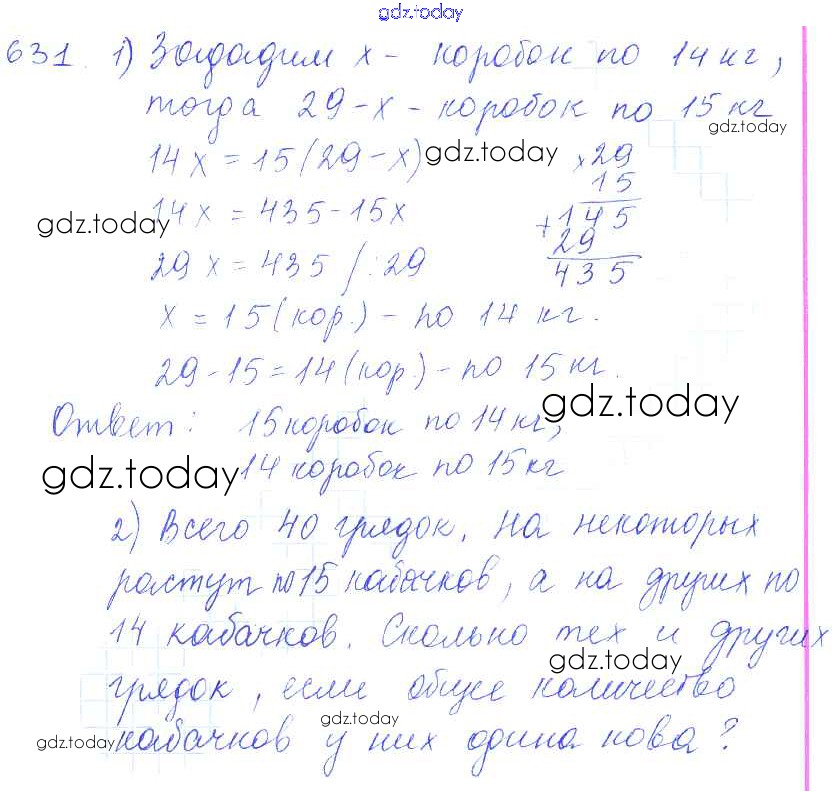 gdz.today
631. 1) Зададим x - коробок по 14 кг,
тогда 29-x - коробок по 15 кг
gdz.today
14x = 15(29-x) gdz.today ×29
15
gdz.today 14x = 435-15x +145
29
29x = 435 /:29 435
x = 15 (кор.) - по 14 кг.
29-15=14 (кор.) - по 15 кг.
gdz.today
Ответ: 15 коробок по 14 кг,
gdz.today 14 коробок по 15 кг
2) Всего 40 грядок. На некоторых
растут по 15 кабачков, а на других по
14 кабачков. Сколько тех и других
gdz.today
грядок, если общее количество
gdz.today
gdz.today кабачков у них одина кова?